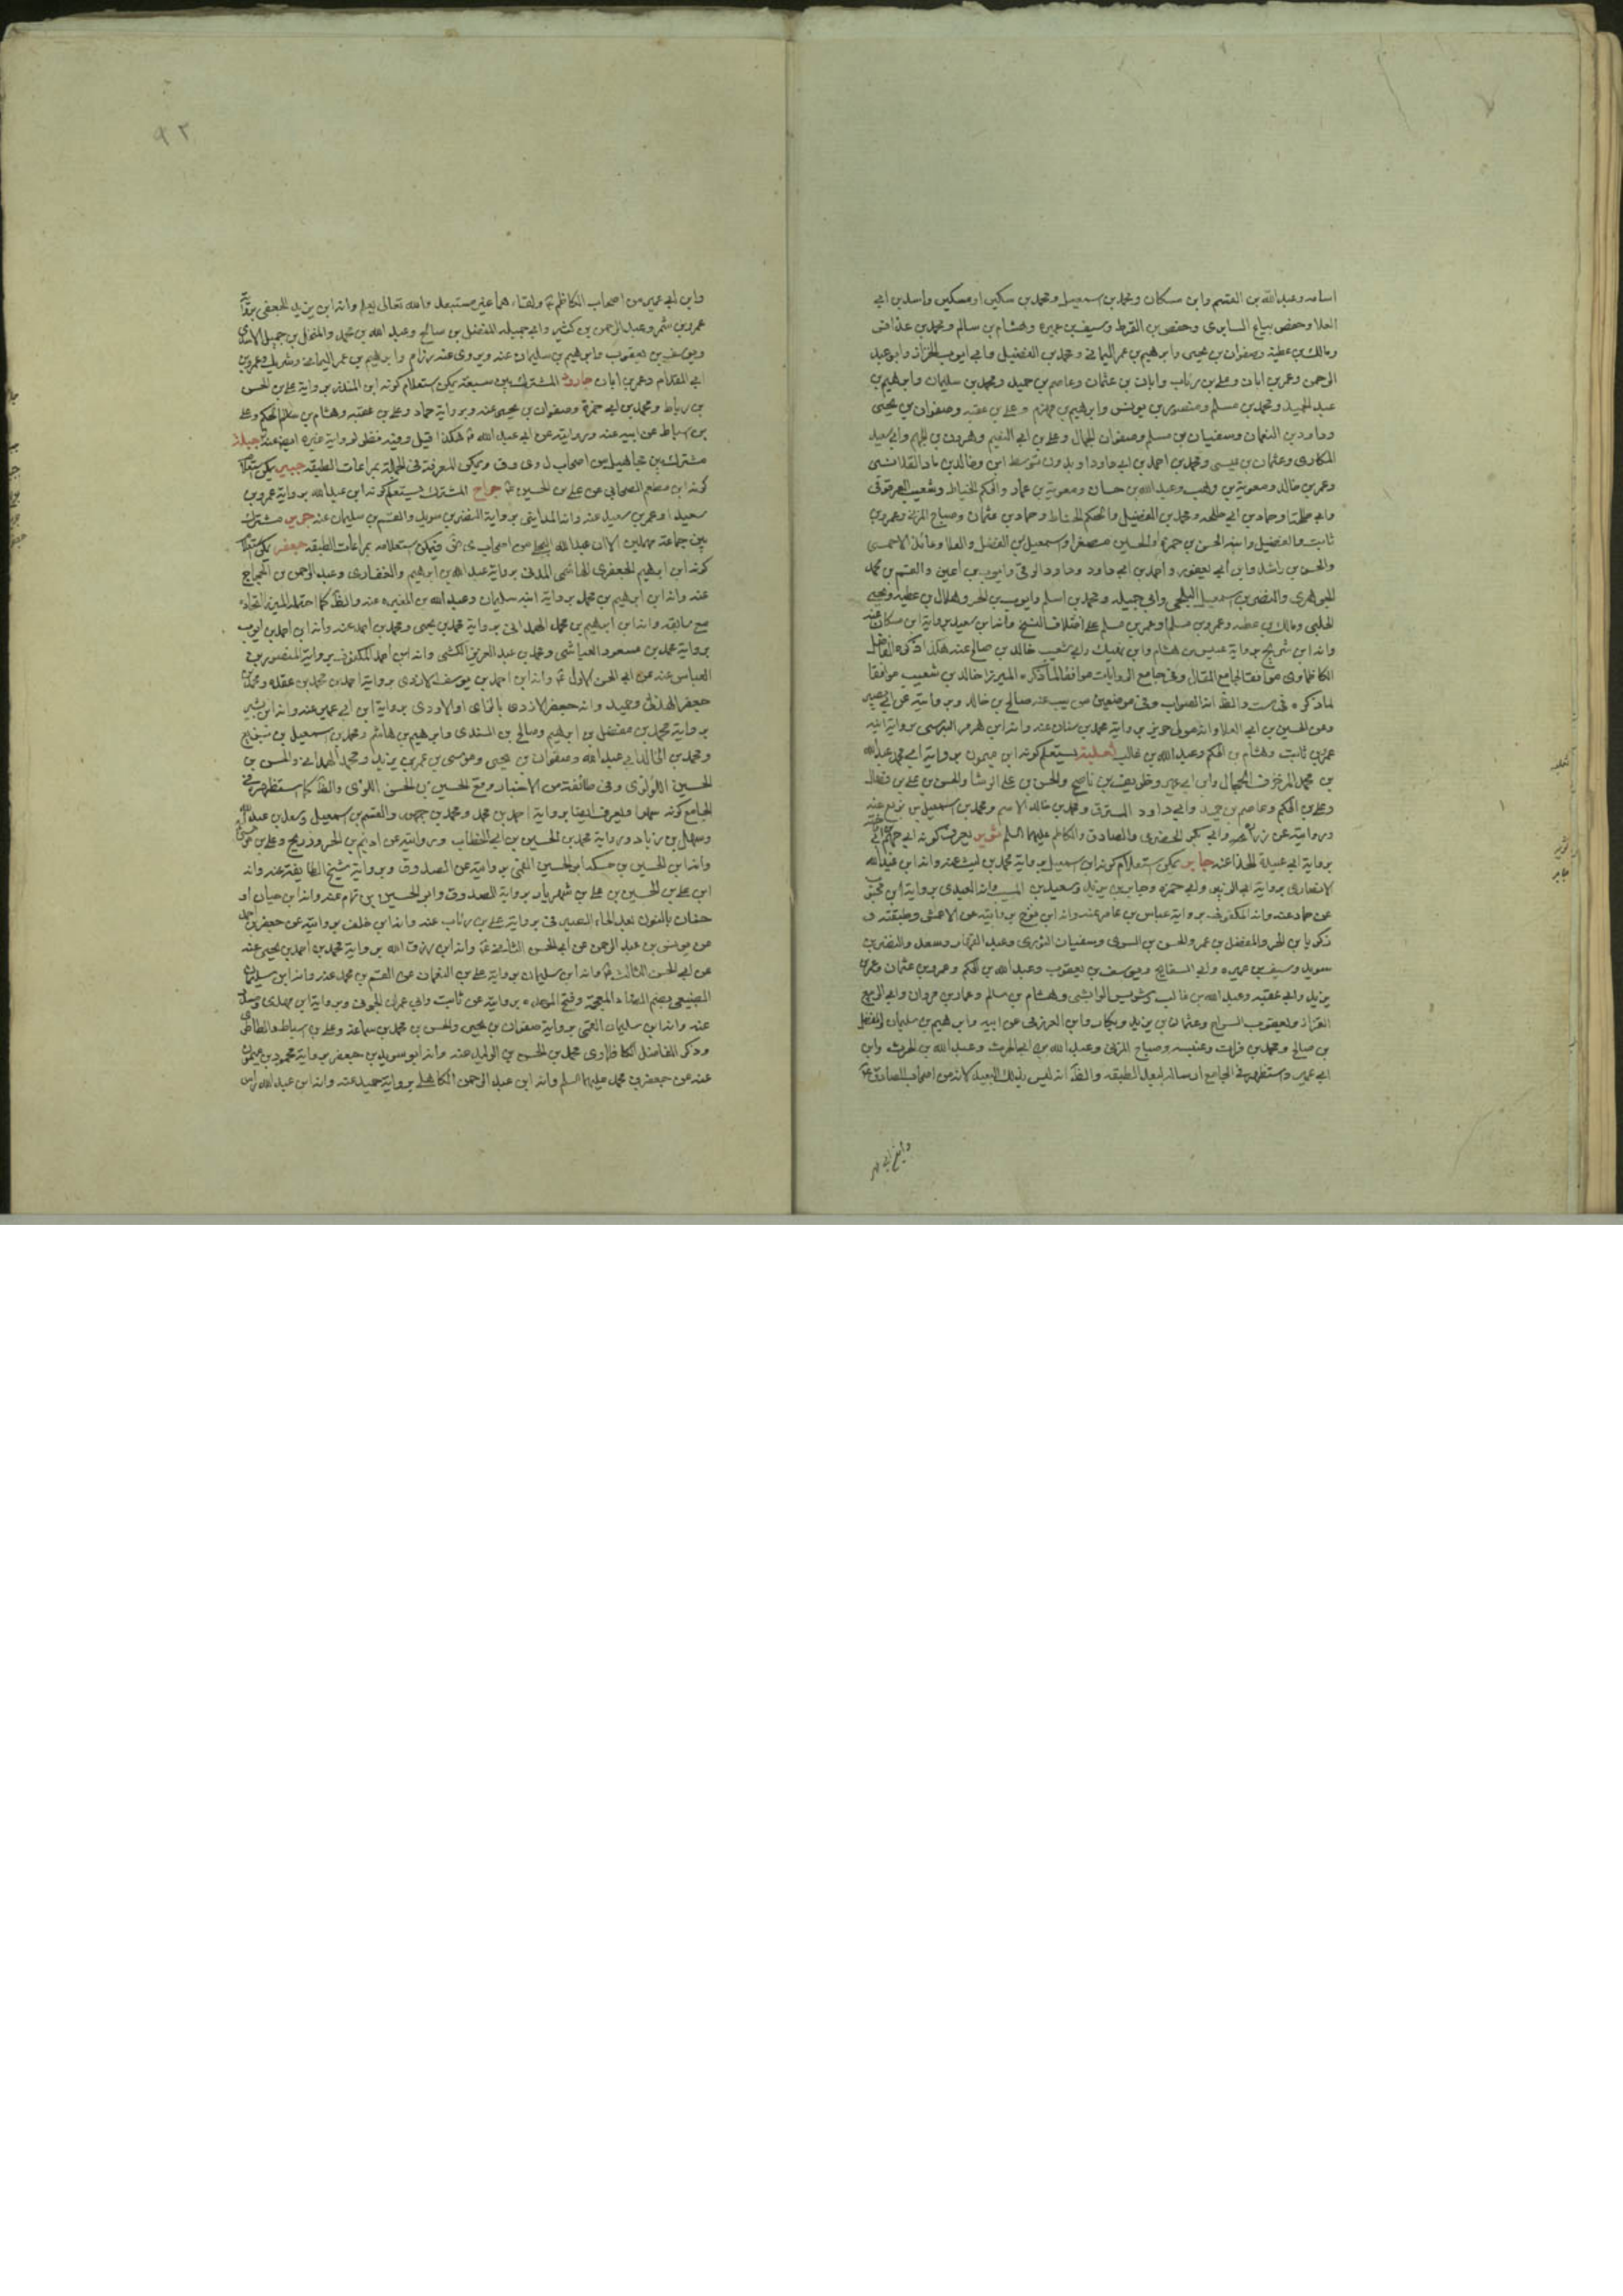 اسامه وعبدالله بن القسم وابن مسكان ومحمد بن اسمعيل ومحمد بن سكين او مسكين واسد بن ابي
العلا وحفص بياع السابرى وحفص بن القرط وسيف بن عميره وهشام بن سالم ومحمد بن عذافر
ومالك بن عطية وصفوان بن يحيى وابرهيم بن عمر اليمانى ومحمد بن الفضيل وابي ايوب الخزاز وابو عبد
الرحمن وعمر بن ابان وعلى بن رئاب وابان بن عثمان وعاصم بن حميد ومحمد بن سليمان وابرهيم بن
عبد الحميد ومحمد بن مسلم ومنصور بن يونس وابرهيم بن مهزم وعلى بن عقبه وصفوان بن يحيى
وداود بن النعمان وسفيان بن مسلم وصفوان الجمال وعلى بن ابي وهرون بن الجهم وابي سعيد
المكارى وعثمان بن عيسى ومحمد بن احمد بن ابي داود او بدون توسط ابن وخالد بن ماد القلانسى
وعمر بن خالد ومعوية بن وهب وعبدالله بن حسان ومعوية بن عمار والحكم الخياط وشعيب العرقوفى
وابي طلحة او حماد بن ابي طلحه ومحمد بن الفضيل والحكم الحناط وحماد بن عثمان وصباح المزنى وعمرو بن
ثابت والفضيل وابنه الحسن بن حمزة او الحسين مصغرا واسمعيل بن الفضل والعلا وعائذ الاحمسى
والحسن بن راشد وابن أبي يعفور واحمد بن ابي داود وداود الرقى وايوب بن اعين والقسم بن محمد
الجوهرى والنضر بن اسمعيل البلخى وابي جميله ومحمد بن اسلم وايوب بن الحر وهلال بن عطيه ويحيى
الحلبى ومالك بن عطيه وعمرو بن مسلم او عمر بن مسلم على اختلاف النسخ وانه ابن سعيد برواية ابن مسكان عنه
وانه ابن شريح برواية عبيس بن هشام وابن نهيك وابي شعيب خالد بن صالح عنه هكذا ذكره الفاضل
الكاظماوى موافقا لجامع المقال وفى جامع الروايات موافقا لما ذكره الميرزا خالد بن شعيب موافقا
لما ذكره فى ست والظ انه الصواب وفى موضعين من يب عنه صالح بن خالد وبروايته عن ابي بصير
وعن الحسين بن ابي العلا وانه مولى حويز برواية محمد بن سنان عنه وانه ابن هرمز برواية ابنه
عمرو بن ثابت وهشام بن الحكم وعبد الله بن غالب ثعلبة يستعلم كونه ابن ميمون برواية ابي محمد عبدالله
بن محمد المزخرف الحجال وابن ابي عمير وظريف بن ناصح والحسن بن على الوشا والحسن بن على بن فضال
وعلى بن الحكم وعاصم بن حميد وابي داود المسترق ومحمد بن خالد الاصم ومحمد بن اسمعيل بن بزيع عنه
وروايته عن زرارة وابي بكر الحضرمى والصادق والكاظم عليهما السلم ثوير يعرف كونه ابي
برواية ابي عبيدة الحذاء عنه جابر يمكن استعلام كونه ابن اسمعيل برواية محمد بن ليث عنه وانه ابن عبدالله
الانصارى برواية ابي الزبير وابي حمزه وجابر بن يزيد وسعيد بن المسيب وانه العبدى برواية ابن محبوب
عن حماد عنه وانه المكفوف برواية عباس بن عامر عنه وانه ابن نوح بروايته عن الاعمش وطبقته ف
زكريا بن الحر والمفضل بن عمر والحسن بن السرى وسفيان الثورى وعبد القهار وسعد والنضر بن
سويد وسيف بن عميره وابي السفاتج ويوسف بن يعقوب وعبد الله بن الحكم وعمرو بن عثمان وعمر بن
يزيد وابي عقبه وعبد الله بن غالب وشريس الوابشى وهشام بن سالم وعمار بن مروان وابي الربيع
القزاز ويعقوب السراج وعثمان بن يزيد وبكار وابن العرزمى عن ابيه وابرهيم بن سليمان والمفضل
بن صالح ومحمد بن فرات وعنبسه وصباح المزنى وعبد الله بن ابي الحرث وعبد الله بن الحرث وابن
ابي عمير واستظهر فى الجامع ارساله لبعد الطبقه والظ انه ليس بذلك البعيد لانه من اصحاب الصادق ع
وابن ابي عمير
وابن ابي عمير من اصحاب الكاظم ع ولقاءهما غير مستبعد والله تعالى يعلم وانه ابن يزيد الجعفى برواية
عمرو بن شمر وعبد الرحمن بن كثير وابي جميله المفضل بن صالح وعبد الله بن محمد والمنخل بن جميل الاسدى
ويوسف بن يعقوب وابرهيم بن سليمان عنه ويروى عنه مرازم وابرهيم بن عمر اليمانى وشريك وعمرو بن
ابي المقدام وعمر بن ابان جارود المشترك بين سبعة يمكن استعلام كونه ابن المنذر برواية على بن الحسن
بن رباط ومحمد بن ابي حمزة وصفوان بن يحيى عنه وبرواية حماد وعلى بن عقبه وهشام بن سالم الحكم وعلى
بن اسباط عن ابيه عنه وبروايته عن ابي عبد الله ع هكذا قيل وفيه نظر لرواية غيره ايض عنه جبلة
مشترك بين مجاهيل من اصحاب ل وى وق ويمكن المعرفة فى الجملة بمراعات الطبقه جبير يمكن استعلام
كونه ابن مطعم الصحابى عن على بن الحسين ع جراح المشترك يستعلم كونه ابن عبد الله برواية عمرو بن
سعيد او عمر بن سعيد عنه وانه المداينى برواية النضر بن سويد والقسم بن سليمان عنه جرير مشترك
بين جماعة مهملين الا ابن عبد الله البجلى من اصحاب ى فيمكن استعلامه بمراعات الطبقه جعفر يمكن استعلام
كونه ابن ابرهيم الجعفرى الهاشمى المدنى برواية عبد الله بن ابرهيم والغفارى وعبد الرحمن بن الحجاج
عنه وانه ابن ابرهيم بن محمد برواية ابنه سليمان وعبد الله بن المغيره عنه والظ كما احتمله الميرزا اتحاده
مع سابقه وانه ابن ابرهيم بن محمد الهمدانى برواية محمد بن يحيى ومحمد بن احمد عنه وانه ابن احمد بن ايوب
برواية محمد بن مسعود العياشى ومحمد بن عبد العزيز الكشى وانه ابن احمد المكفوف برواية المنصور بن
العباس عنه عن ابي الحسن الاول ع وانه ابن احمد بن يوسف الاودى برواية احمد بن محمد بن عقده ومحمد بن
جعفر وانه جعفر الازدى بالزاى او الاودى برواية ابن ابي عمير عنه وانه ابن بشير
برواية محمد بن مفضل بن ابرهيم وصالح بن السندى وابرهيم بن هاشم ومحمد بن اسمعيل بن
ومحمد بن خالد ابي عبد الله وصفوان بن يحيى وموسى بن عمر بن يزيد ومحمد الهمدانى والحسن بن
الحسين اللؤلؤى وفى طائفة من الاخبار وقع الحسين بن الحسن اللؤلؤى والظ كما استظهره فى
الجامع كونه سهوا ويعرف ايضا برواية احمد بن محمد ومحمد بن جمهور والقسم بن اسمعيل وسعد بن عبد الله
وسهل بن زياد وبرواية محمد بن الحسين بن ابي الخطاب وبروايته عن اديم بن الحر وذريح وعلى بن
وانه ابن الحسين بن حسكه ابو الحسين القمى بروايته عن الصدوق وبرواية شيخ الطايفة عنه وانه
ابن على بن الحسين بن على بن شهريار برواية الصدوق وابو الحسين بن تمام عنه وانه ابن حيان او
حنان بالنون بعد الحاء برواية على بن رئاب عنه وانه ابن خلف بروايته عن جعفر بن احمد
عن يونس بن عبد الرحمن عن ابي الحسن ع وانه ابن رزق الله برواية محمد بن احمد بن يحيى عنه
عن ابي الحسن الثالث ع وانه ابن سليمان برواية على بن النعمان عن القسم بن محمد عنه وانه ابن سليمان
الضبيعى بضم الضاد المعجمة وفتح الموحده بروايته عن ثابت وابي عمران الجونى وبرواية ابن مهدى
عنه وانه ابن سليمان القمى برواية صفوان بن يحيى والحسن بن محمد بن سماعة وعلى بن اسباط والطاطرى
وذكر الفاضل الكاظماوى محمد بن الحسن بن الوليد عنه وانه ابو سويد بن جعفر برواية محمود بن ميمون
عنه عن جعفر بن محمد عليهما السلم وانه ابن عبد الرحمن الكاهلى برواية حميد عنه وانه ابن عبد الله راس